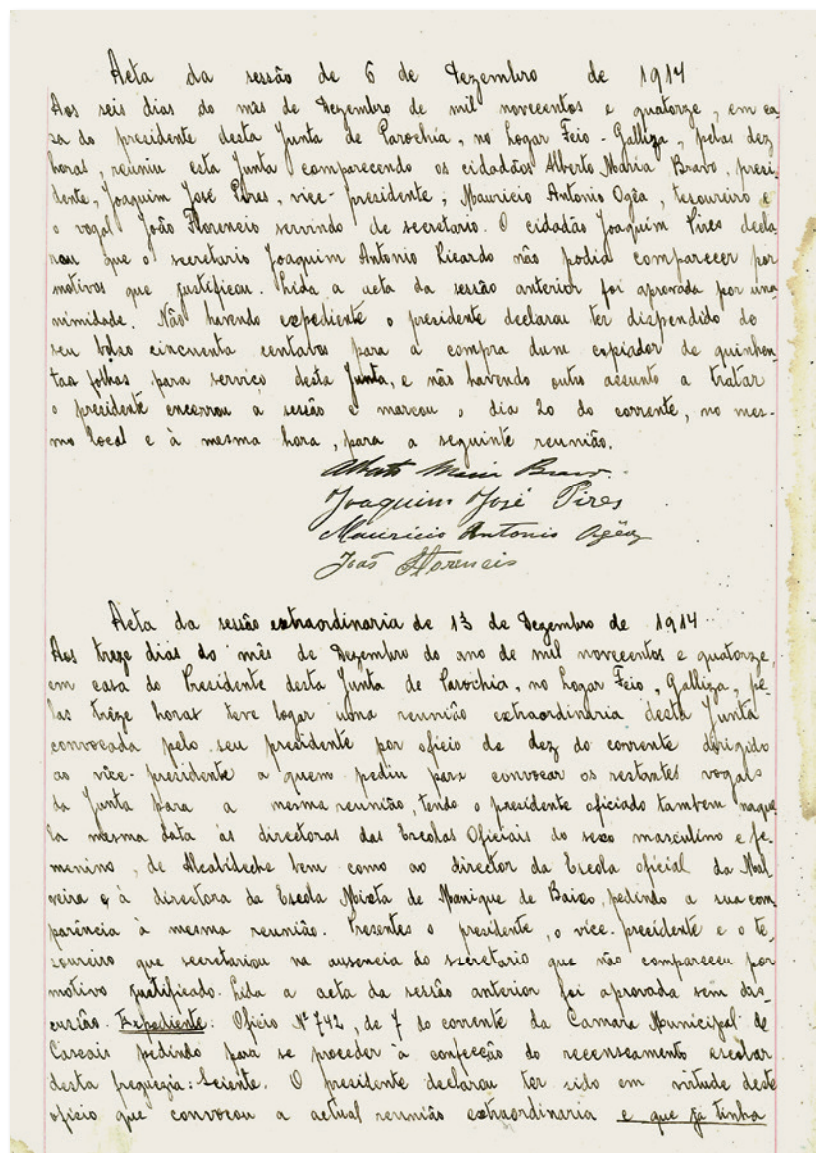 Acta da sessão de 6 de Dezembro de 1914
Aos seis dias do mês de Dezembro de mil novecentos e quatorze, em ca-
sa do presidente desta Junta de Parochia, no logar Feio - Galliza, pelas dez
horas, reuniu esta Junta comparecendo os cidadãos Alberto Maria Bravo, presi-
dente, Joaquim José Pires, vice-presidente, Mauricio Antonio Ogêa, tesoureiro e
o vogal João Florencio servindo de secretario. O cidadão Joaquim Pires decla-
rou que o secretario Joaquim Antonio Ricardo não podia comparecer por
motivos que justificou. Lida a acta da sessão anterior foi aprovada por una-
nimidade. Não havendo expediente o presidente declarou ter dispendido do
seu bolso cincuenta centavos para a compra dum copiador de quinhen-
tas folhas para serviço desta Junta, e não havendo outro assunto a tratar
o presidente encerrou a sessão e marcou o dia 20 do corrente, no mes-
mo local e à mesma hora, para a seguinte reunião.
Alberto Maria Bravo.
Joaquim José Pires
Mauricio Antonio Ogêa
João Florencio
Acta da sessão extraordinaria de 13 de Dezembro de 1914
Aos treze dias do mês de Dezembro do ano de mil novecentos e quatorze,
em casa do Presidente desta Junta de Parochia, no logar Feio, Galliza, pe-
las trêze horas teve logar uma reunião extraordinaria desta Junta
convocada pelo seu presidente por oficio de dez do corrente dirigido
ao vice-presidente a quem pediu para convocar os restantes vogais
da Junta para a mesma reunião, tendo o presidente oficiado tambem naque-
la mesma data às directoras das Escolas Oficiais do sexo masculino e fe-
menino, de Alcabideche bem como ao director da Escola oficial da Mal-
veira e à directora da Escola Mixta de Manique de Baixo, pedindo a sua com-
parência à mesma reunião. Presentes o presidente, o vice-presidente e o te-
zoureiro que secretariou na ausencia do secretario que não compareceu por
motivo justificado. Lida a acta da sessão anterior foi aprovada sem dis-
cussão. Expediente: Oficio Nº 742, de 7 do corrente da Camara Municipal de
Cascais pedindo para se proceder à confecção do recenseamento escolar
desta freguezia: Sciente. O presidente declarou ter sido em virtude deste
oficio que convocou a actual reunião extraordinaria e que já tinha